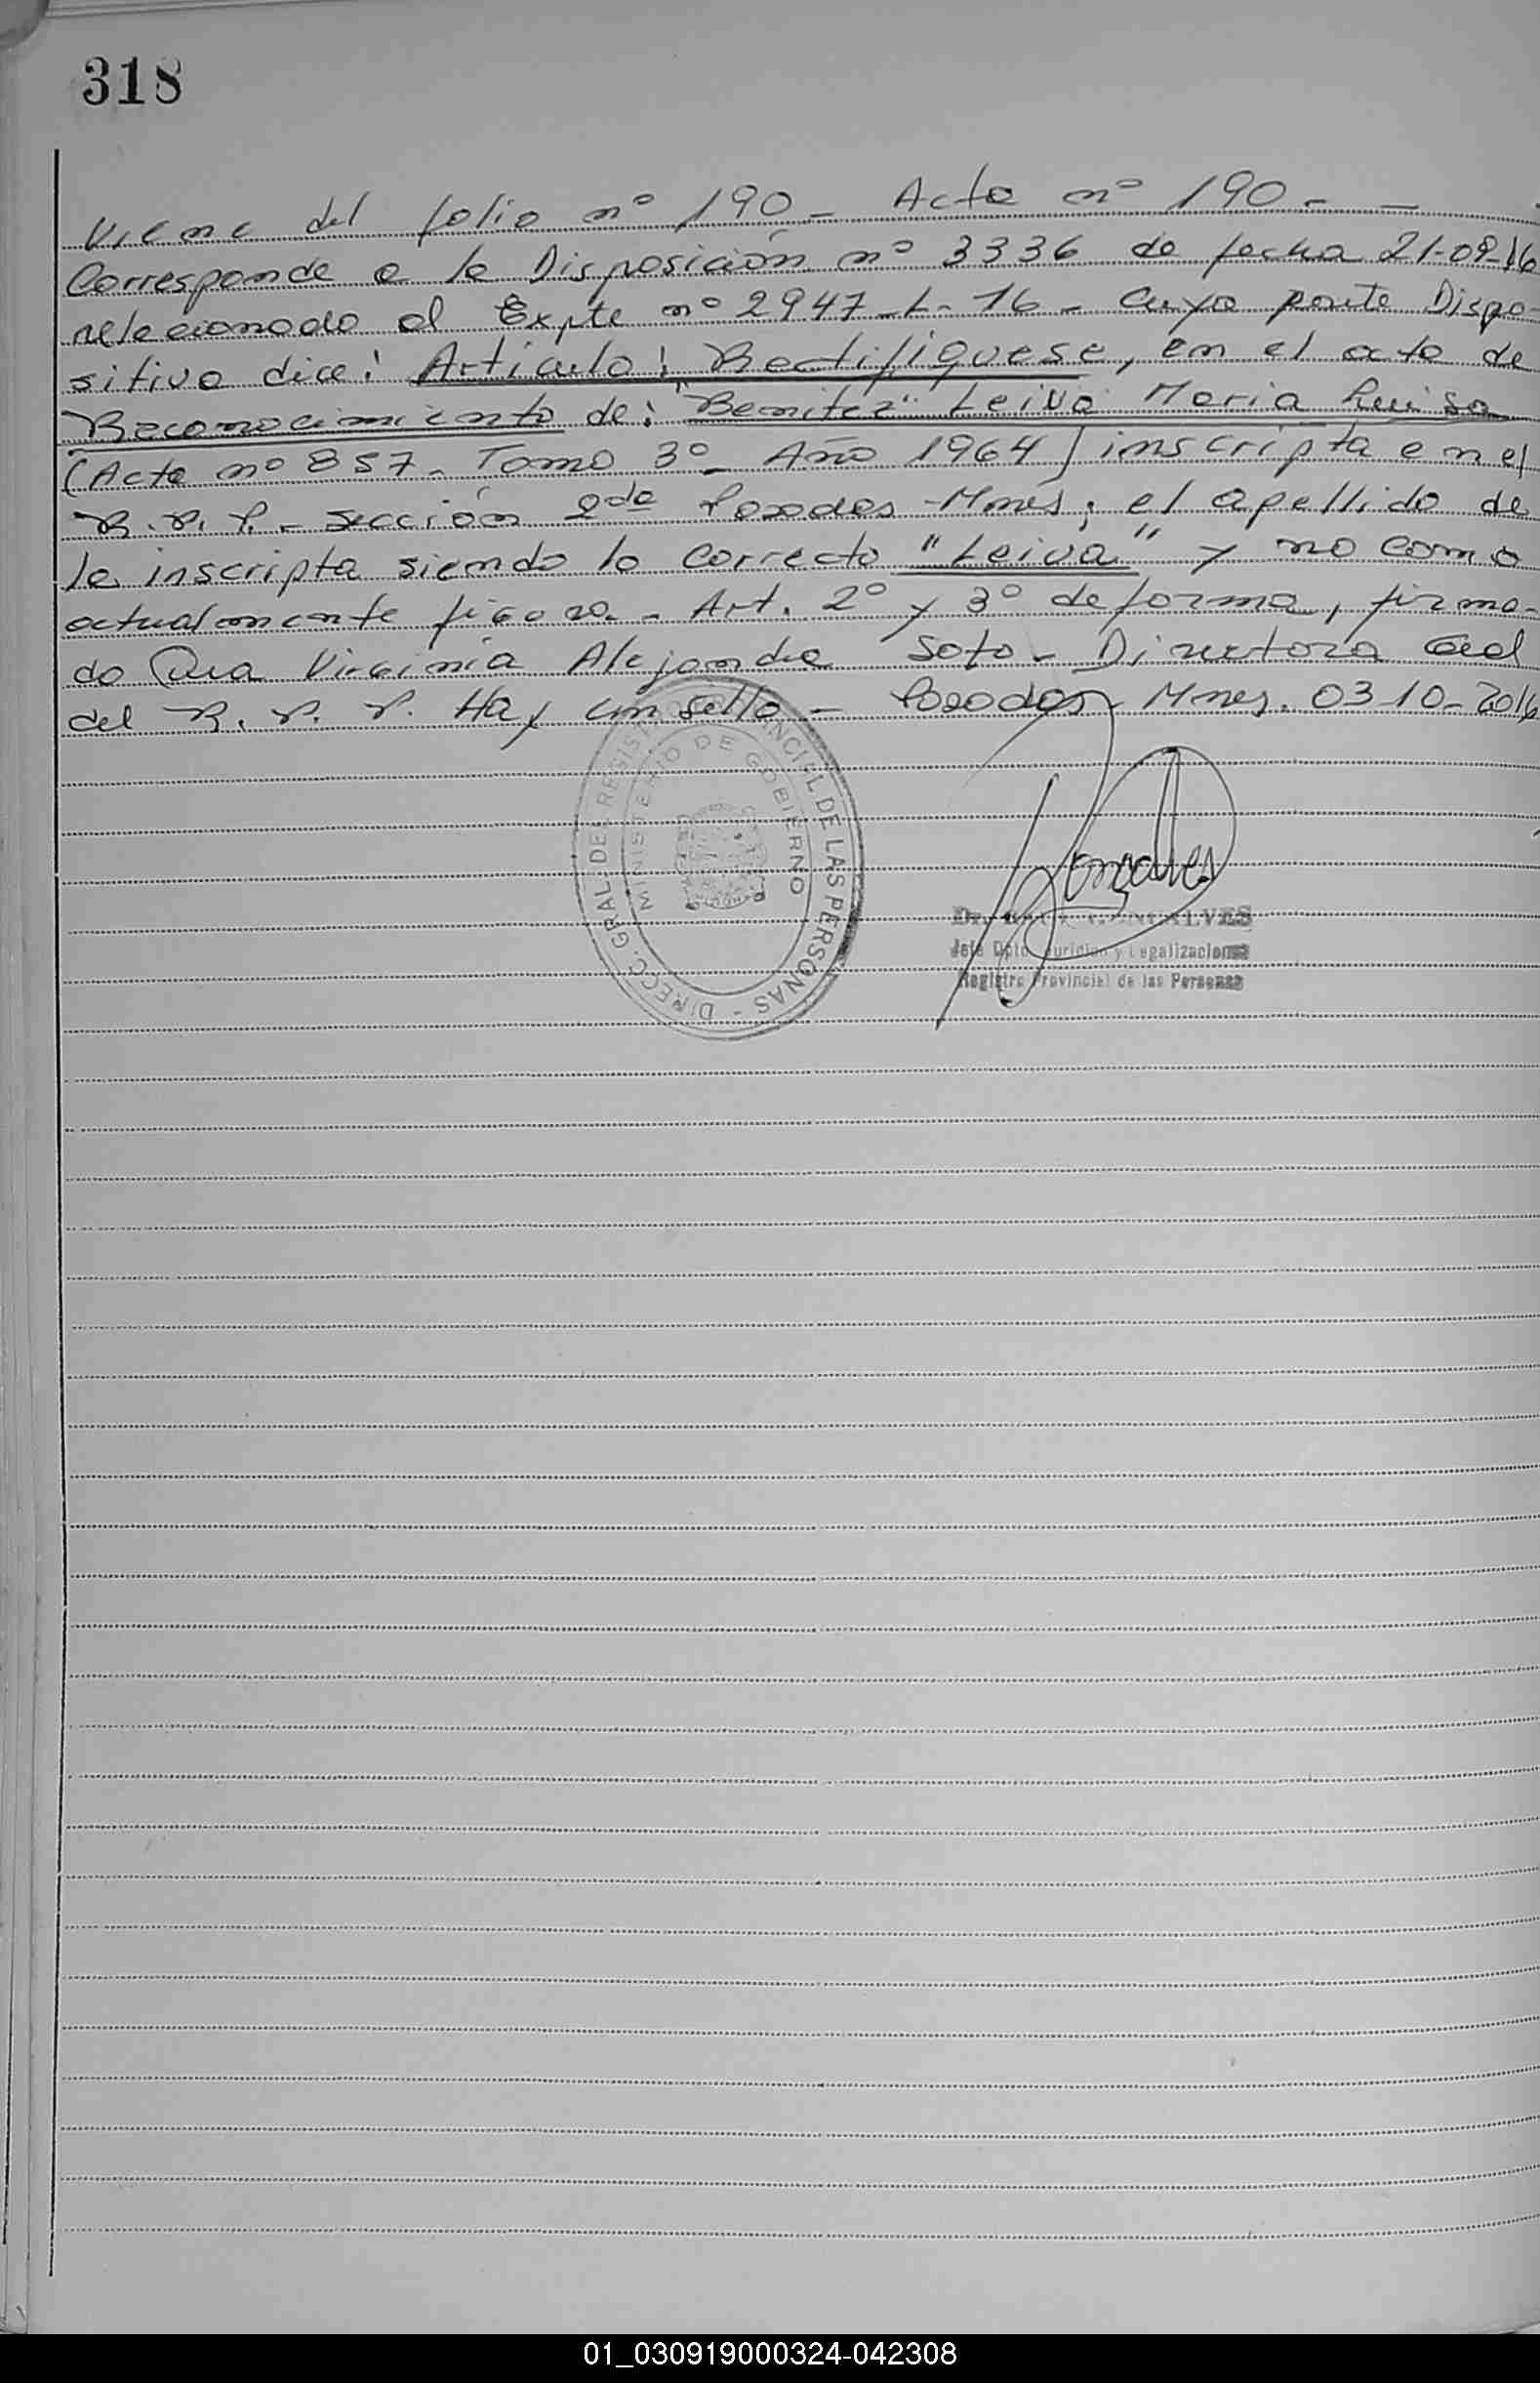 318
Viene del folio nº 190 - Acta nº 190 - -
Corresponde a la Disposición nº 3336 de fecha 21-09-16
relacionado al Expte nº 2947-L-16 - Cuya parte Dispo-
sitiva dice: Articulo: Rectifiquese, en el acta de
Reconocimiento de: "Benitez" Leiva Maria Luisa
(Acta nº 857 - Tomo 3º - Año 1964) inscripta en el
R.P.P. - sección 2da Posadas - Mnes; el apellido de
la inscripta siendo lo correcto "Leiva" y no como
actualmente figura - Art. 2º y 3º de forma, firma-
do Virginia Alejandra Soto - Directora Gral
del R.P.P. Hay un sello - Posadas - Mnes. 03 10 - 2016
DIRECC. GRAL. DE REGISTRO PROVINCIAL DE LAS PERSONAS -
MINISTERIO DE GOBIERNO
Gonçalves
Dr. GONCALVES
Jefe Dpto Juridico y Legalizaciones
Registro Provincial de las Personas
01_030919000324-042308